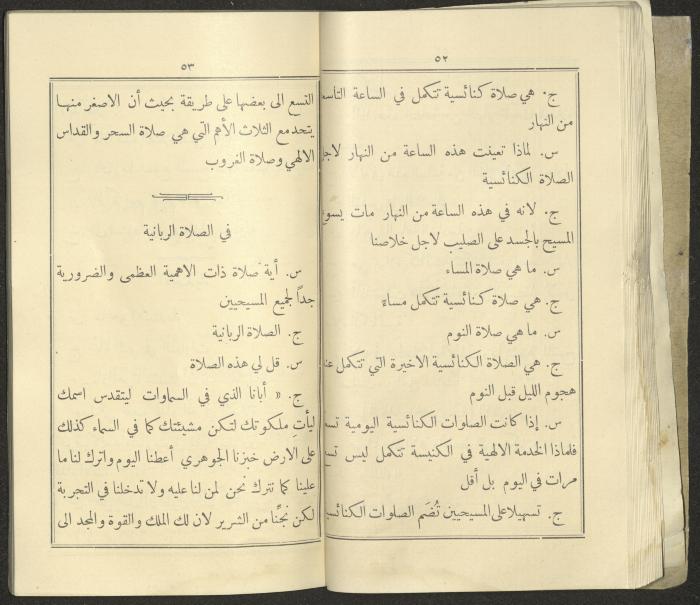 ٥٢
ج. هي صلاة كنائسية تتكمل في الساعة التاسعة
من النهار
س. لماذا تعينت هذه الساعة من النهار لاجل
الصلاة الكنائسية
ج. لانه في هذه الساعة من النهار مات يسوع
المسيح بالجسد على الصليب لاجل خلاصنا
س. ما هي صلاة المساء
ج. هي صلاة كنائسية تتكمل مساءً
س. ما هي صلاة النوم
ج. هي الصلاة الكنائسية الاخيرة التي تتكمل عند
هجوم الليل قبل النوم
س. إذا كانت الصلوات الكنائسية اليومية تسع
فلماذا الخدمة الالهية في الكنيسة تتكمل ليس تسع
مرات في اليوم بل أقل
ج. تسهيلا على المسيحيين تُضَم الصلوات الكنائسية
٥٣
التسع الى بعضها على طريقة بحيث أن الاصغر منها
يتحد مع الثلاث الأهم التي هي صلاة السحر والقداس
الالهي وصلاة الغروب
في الصلاة الربانية
س. أية صلاة ذات الاهمية العظمى والضرورية
جداً لجميع المسيحيين
ج. الصلاة الربانية
س. قل لي هذه الصلاة
ج. « أبانا الذي في السماوات ليتقدس اسمك
ليأتِ ملكوتك لتكن مشيئتك كما في السماء كذلك
على الارض خبزنا الجوهري أعطنا اليوم واترك لنا ما
علينا كما نترك نحن لمن لنا عليه ولا تدخلنا في التجربة
لكن نجّنا من الشرير لان لك الملك والقوة والمجد الى